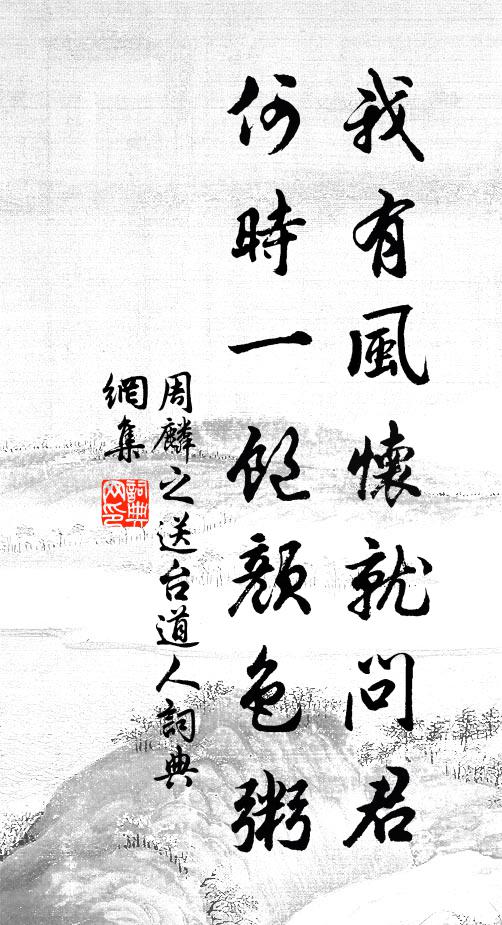 我有風懷就問君
何時一飽顏色粥
周麟之送台道人詞典
網集
詞典網印